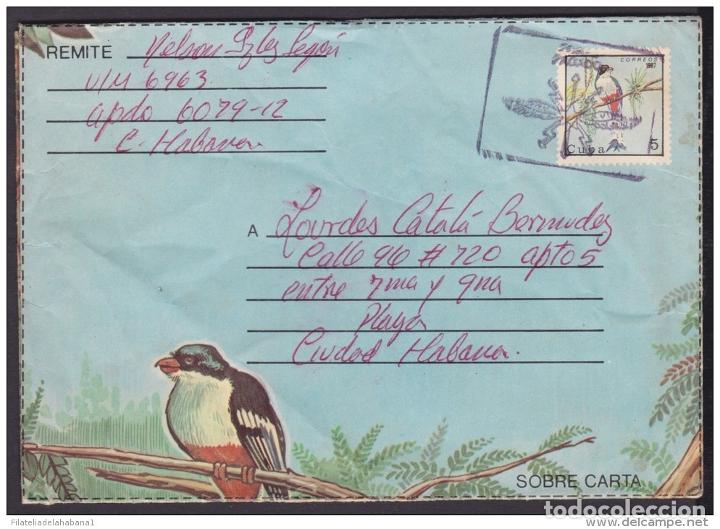 REMITE Nelson Glez Segón
U/M 6963
apdo 6079-12
C. Habana
CORREOS
1987
Cuba 5
A Lourdes Catalá Bermudez
Calle 96 # 720 apto 5
entre 7ma y 9na
Playa
Ciudad Habana.
SOBRE CARTA
FilateliadelaHabana1
todocoleccion